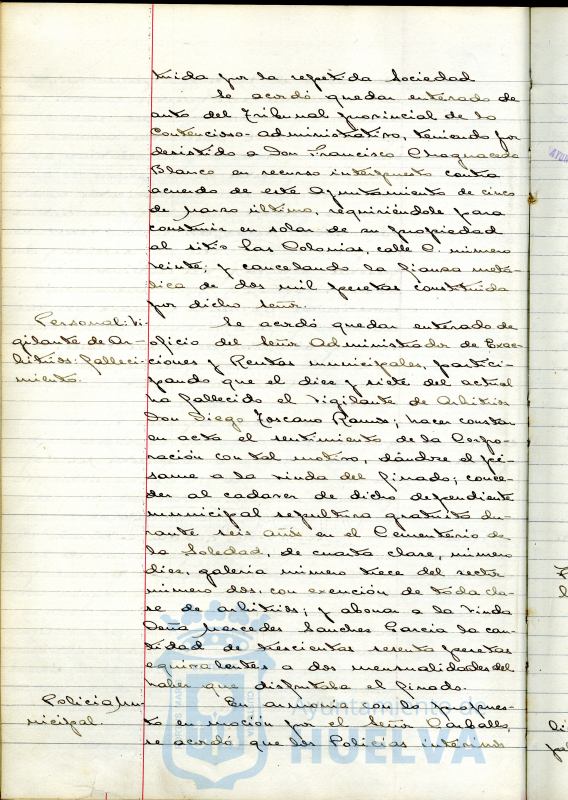 tuida por la repetida Sociedad
Se acordó quedar enterado de
auto del Tribunal provincial de lo
Contencioso-administrativo, teniendo por
desistido a Don Francisco Chaguaceda
Blanco en recurso interpuesto contra
acuerdo de este Ayuntamiento de cinco
de marzo último, requiriéndole para
construir en solar de su propiedad
al sitio Las Colonias, calle C. número
veinte; y cancelando la fianza metá-
lica de dos mil pesetas constituida
por dicho señor.
Personal: Vi-
gilante de Ar-
bitrios: falleci-
miento.
Se acordó quedar enterado de
oficio del Señor Administrador de Exac-
ciones y Rentas municipales, partici-
pando que el diez y siete del actual
ha fallecido el Vigilante de Arbitrios
Don Diego Toscano Ramos; hacer constar
en acta el sentimiento de la Corpo-
ración con tal motivo, dándose el pé-
same a la viuda del finado; conce-
der al cadaver de dicho dependiente
municipal sepultura gratuita du-
rante seis años en el Cementerio de
la Soledad, de cuarta clase, número
diez, galería número trece del sector
número dos: con exención de toda cla-
se de arbitrios; y abonar a la viuda
Doña Mercedes Sanchez Garcia la can-
tidad de trescientas sesenta pesetas
equivalentes a dos mensualidades del
haber que disfrutaba el finado.
Policia mu-
nicipal.
En armonia con lo propues-
to en moción por el Señor Carballo,
se acordó que los Policías interinos
Ayuntamiento de
HUELVA